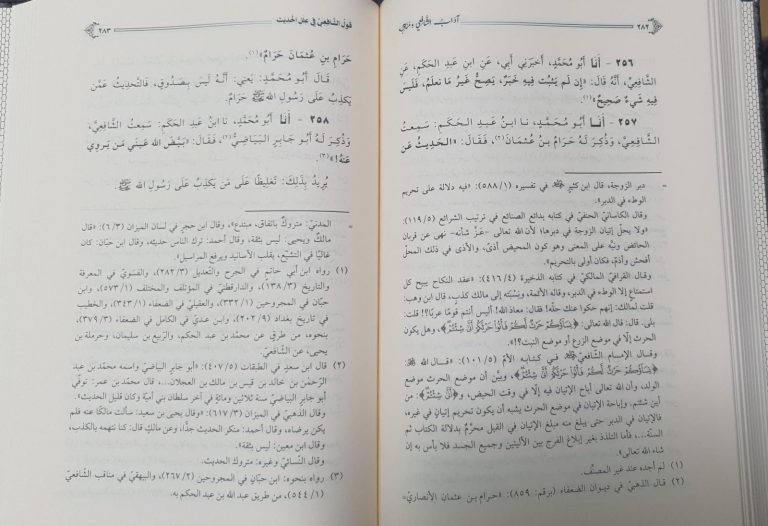 ٢٨٢
آداب الشافعي ومناقبه
٢٥٦ - أنا أَبُو مُحَمَّدٍ، أخبرني أَبِي، عَن ابنِ عَبدِ الحَكَمِ، عَنِ
الشَّافِعِيِّ، أَنَّهُ قَالَ: «إِن لَم يَثبُت فِيهِ خَبَرٌ، يَصِحُّ غَيرُ مَا نَعلَمُ، فَلَيسَ
فِيهِ شَيءٌ صَحِيحٌ»(١).
٢٥٧ - أنا أَبُو مُحَمَّدٍ، نا ابنُ عَبدِ الحَكَمِ: سَمِعتُ
الشَّافِعِيَّ، وَذُكِرَ لَهُ حَرَامُ بنُ عُثمَانَ(٢)، فَقَالَ: «الحَدِيثُ عَن
= دبر الزوجة، قال ابن كثير في تفسيره (١/ ٥٨٨): «فيه دلالة على تحريم
الوطء في الدبر».
وقال الكاسانيُّ الحنفيّ في كتابه بدائع الصنائع في ترتيب الشرائع (٥/ ١١٩):
«ولا يحلّ إتيان الزوجة في دبرها؛ لأن الله تعالى -عَزَّ شأنه- نهى عن قربان
الحائض ونبَّه على المعنى وهو كون المحيض أذىً، والأذى في ذلك المحلّ
أفحش وأذمّ، فكان أولى بالتحريم».
وقال القرافيّ المالكيّ في كتابه الذخيرة (٤/ ٤١٦): «عقد النكاح يبيح كل
استمتاعٍ إلا الوطء في الدبر، وقاله الأئمة، ونِسْبَته إلى مالك كذبٌ، قال ابن وهب:
قلت لمالك: إنهم حكوا عنك حلَّه! فقال: معاذ الله! أليس أنتم قومًا عربًا؟! قلت:
بلى. قال: قال الله تعالى: ﴿نِسَآؤُكُمْ حَرْثٌ لَّكُمْ فَأْتُوا۟ حَرْثَكُمْ أَنَّىٰ شِئْتُمْ﴾، وهل يكون
الحرث إلّا في موضع الزرع أو موضع النبت؟!».
وقال الإمام الشَّافعيّ في كتابه الأمّ (٥/ ١٠١): «قال الله
﴿نِسَآؤُكُمْ حَرْثٌ لَّكُمْ فَأْتُوا۟ حَرْثَكُمْ أَنَّىٰ شِئْتُمْ﴾، وبيِّن أن موضع الحرث موضع
الولد، وأن الله تعالى أباح الإتيان فيه إلا في وقت الحيض، و﴿أَنَّىٰ شِئْتُمْ﴾: من
أين شئتم. وإباحة الإتيان في موضع الحرث يشبه أن يكون تحريم إتيانٍ في غيره،
فالإتيان في الدبر حتى يبلغ منه مبلغ الإتيان في القبل محرَّمٌ بدلالة الكتاب ثم
السنّة...، فأما التلذذ بغير إبلاغ الفرج بين الأليتين وجميع الجسد فلا بأس به إن
شاء الله تعالى».
(١) لم أجده عند غير المصنِّف.
(٢) قال الذهبيّ في ديوان الضعفاء (برقم: ٨٥٩): «حرام بن عثمان الأنصاريّ
قول الشافعيّ في علل الحديث
٢٨٣
حَرَامِ بنِ عُثمَانَ حَرَامٌ»(١).
قَالَ أَبُو مُحَمَّدٍ: يَعنِي: أَنَّهُ لَيسَ بِصَدُوقٍ، فَالتَّحدِيثُ عَمَّن
يَكذِبُ عَلَى رَسُولِ اللهِ ﷺ حَرَامٌ.
٢٥٨ - أنا أَبُو مُحَمَّدٍ، نا ابنُ عَبدِ الحَكَمِ: سَمِعتُ الشَّافِعِيَّ،
وَذُكِرَ لَهُ أَبُو جَابِرٍ البَيَاضِيُّ(٢)، فَقَالَ: «بَيَّضَ اللهُ عَينَي مَن يَروِي
عَنهُ!»(٣).
يُرِيدُ بِذَلِكَ: تَغلِيظًا عَلَى مَن يَكذِبُ عَلَى رَسُولِ اللهِ ﷺ.
= المدنيّ: متروكٌ باتفاق، مبتدع»، وقال ابن حجر في لسان الميزان (٣/ ٦): «قال
مالكٌ ويحيى: ليس بثقة، وقال أحمد: ترك الناس حديثه، وقال ابن حبّان: كان
غاليًا في التشيّع، يقلب الأسانيد ويرفع المراسيل».
(١) رواه ابن أبي حاتم في الجرح والتعديل (٣/ ٢٨٢)، والفسَويّ في المعرفة
والتاريخ (٣/ ١٣٨)، والدارقطنيّ في المؤتلف والمختلف (١/ ٥٧٣)، وابن
حبّان في المجروحين (١/ ٣٣٢)، والعقيليّ في الضعفاء (١/ ٣٤٣)، والخطيب
في تاريخ بغداد (٩/ ٢٠٢)، وابن عديّ في الكامل في الضعفاء (٣/ ٣٧٩)،
بنحوه، من طرق عن محمّد بن عبد الحكم، والرّبيع بن سليمان، وحرملة بن
يحيى، عن الشّافعيّ.
(٢) قال ابن سعدٍ في الطبقات (٥/ ٤٠٧): «أبو جابر البياضيّ واسمه محمّد بن عبد
الرّحمن بن خالد بن قيس بن مالك بن العجلان... قال محمّد بن عمر: توفّي
أبو جابر البياضيّ سنة ثلاثين ومائةٍ في آخر سلطان بني أميّة وكان قليل الحديث».
وقال الذهبيّ في الميزان (٣/ ٦١٧): «وقال يحيى بن سعيد: سألت مالكًا عنه فلم
يكن يرضاه، وقال أحمد: منكر الحديث جدًّا، وعن مالكٍ قال: كنا نتهمه بالكذب،
وقال ابن معين: ليس بثقة».
وقال النَّسائيّ وغيره: متروك الحديث.
(٣) رواه بنحوه: ابن حبّان في المجروحين (٢/ ٢٦٧)، والبيهقيّ في مناقب الشّافعيّ
(١/ ٥٤٤)، من طريق عبد الله بن عبد الحكم به.